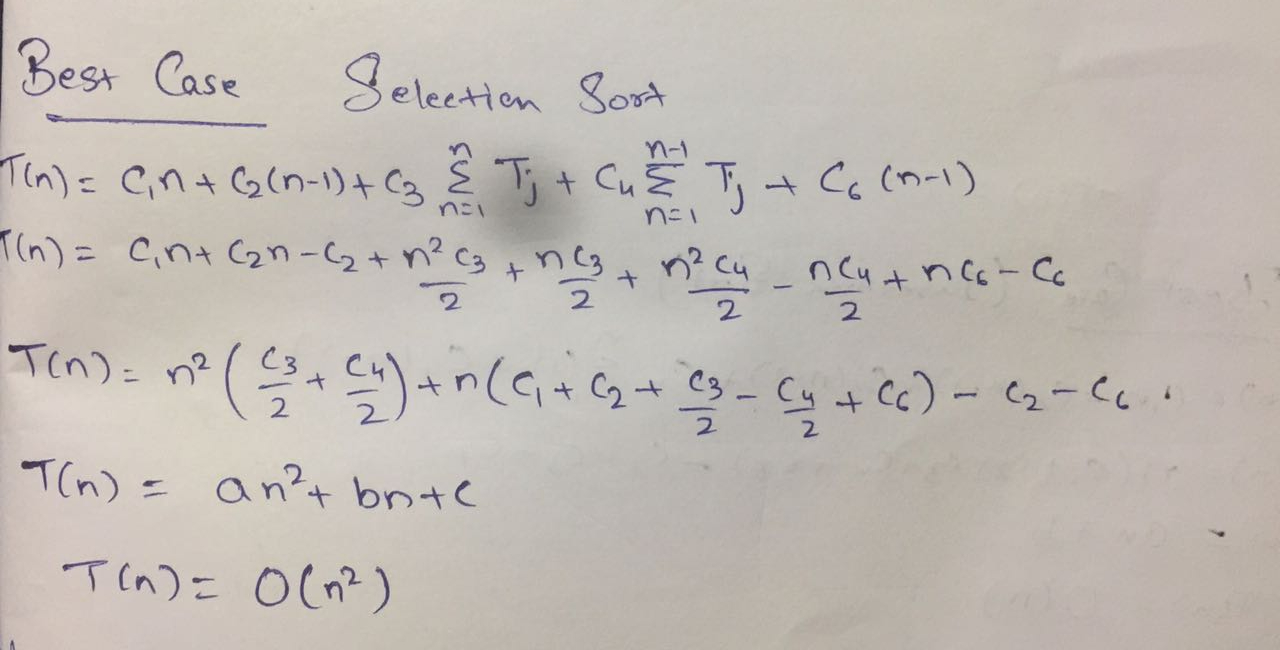 Best Case Selection Sort
T(n) = C₁n + C₂(n-1) + C₃ n Σ n=1 Tj + C₄ n-1 Σ n=1 Tj + C₆ (n-1)
T(n) = C₁n + C₂n - C₂ + n²C₃/2 + nC₃/2 + n²C₄/2 - nC₄/2 + nC₆ - C₆
T(n) = n² (C₃/2 + C₄/2) + n(C₁ + C₂ + C₃/2 - C₄/2 + C₆) - C₂ - C₆.
T(n) = an² + bn + c
T(n) = O(n²)